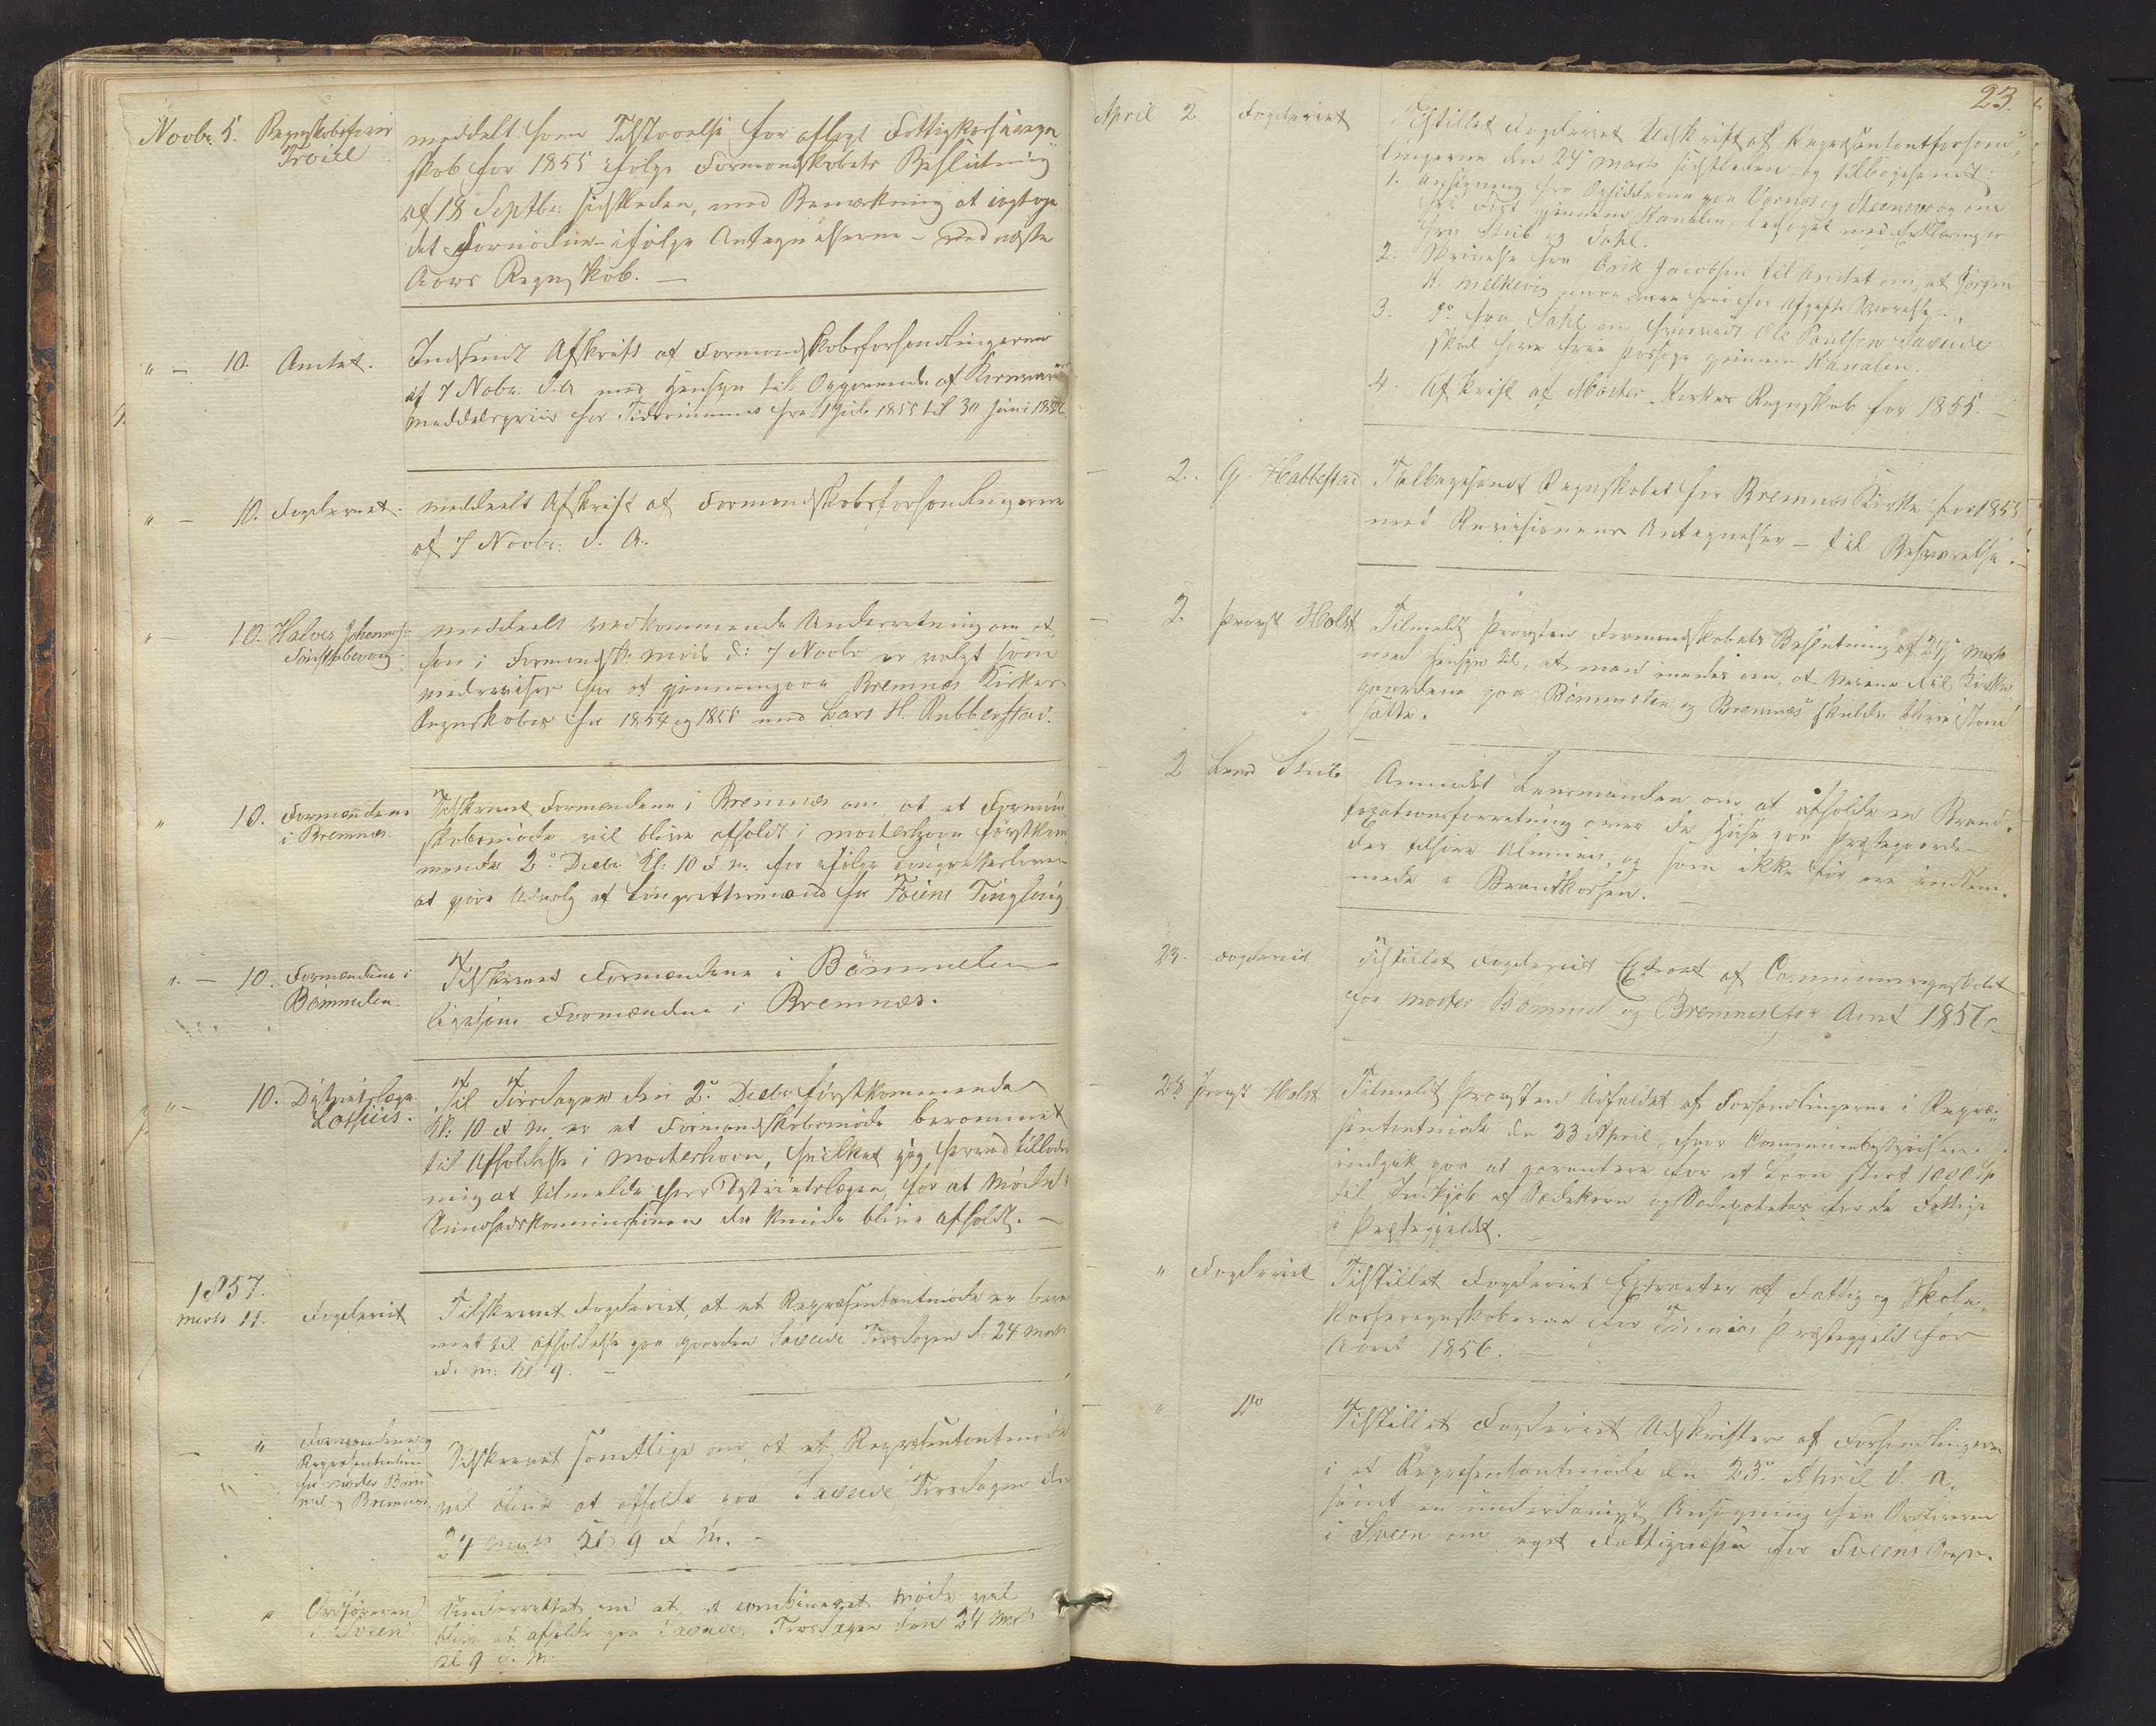 Novbr. 5. Regnskabsfører
Troiel
meddelt som Tilstaaelse for aflagt Fattigkasseregn-
skab for 1855 ifølge Formandskabets Beslutning
af 18 Septbr. sidstleden, med Bemærkning at iagttage
det Fornødne ifølge Antegnelserne ved næste
Aars Regnskab. —
" — 10. Amtet.
Indsendt Afskrift af Formandskabsforhandlingerne
af 7 Novbr. d. A. med Hensyn til Opgivende af Kornvare
middelspriis for Tidsrummet fra 1 Juli 1855 til 30 Juni 1856
" — 10. Fogderiet.
meddeelt Afskrift af Formandskabsforhandlingerne
af 7 Novbr. d. A.
" — 10. Halvor Johannes-
meddeelt vedkommende Underretning om at
han i Formandsk. Møde d: 7 Novbr er valgt som
medrevisor for at gjennemgaae Bremnes Kirkes
Regnskaber for 1854 og 1855 med Lars H. Rubbestad.
" 10. Formændene
i Bremnes.
Tilskrevet Formændene i Bremnes om, at et Formand-
skabsmøde vil blive afholdt i Mosterhavn førstkom-
mende 2den Decbr. Kl: 10 F. M. for ifølge
at gjøre Udvalg af Laugrettesmænd for Føiens Tinglaug.
" — 10. Formændene i
Bømmelen.
Tilskrevet Formændene i Bømmelen
ligesom Formændene i Bremnes.
" — 10. Districtslæge
Lossius.
Til Tirsdagen den 2den Decbr førstkommende
Kl: 10 F M er et Formandskabsmøde berammet
til Afholdelse i Mosterhavn, hvilket jeg herved tillader
mig at tilmelde Herr Districtslægen, for at Møde i
Sundhedskommissionen der kunde blive afholdt. —
1857.
Marts 11. Fogderiet
Tilskrevet Fogderiet, at et Repræsentantmøde er beram-
met til Afholdelse paa Gaarden Tirsdagen d. 24 Marts
F. M. Kl 9. —
— " Formændene og
Repræsentanterne
for Moster Bøm-
mel og Bremnes.
Tilskrevet samtlige om, at et Repræsentantmøde
vil blive at afholde paa Tirsdagen den
24 Marts Kl 9 F M. —
" Ordføreren
i Sveen.
Underrettet om at et combineret Møde vil
blive at afholde paa Tirsdagen den 24 Marts
Kl 9 F. M.
23.
April 2 Fogderiet
Tilstillet Fogderiet Udskrift af Repræsentantforhand-
lingerne den 24de Marts sidstleden og tilbagesendt:
1. Ansøgning fra Opsidderne paa Vernes og om
fri gjennem Kanalen, ledsaget med Erklæringer
fra Stub og Dahl.
2. Skrivelse fra Erik Jacobsen til Amtet om, at Jørgen
3. Do fra Dahl om hvorvidt Ole Paulsen
skal have frie Passage gjennem Kanalen.
4. Afskrift af Moster Kirkes Regnskab for 1855. —
— 2. G. Habbestad
Tilbagesendt Regnskabet for Bremnes Kirke for 1855
med Revisionens Antegnelser — til Besvarelse. —
— 2. Provst Holst
Tilmeldt Provsten Formandskabets Beslutning af 24 Marts
med Hensyn til, at man enedes om, at Veiene til Kirke-
gaardene paa Bømmelen og Bremnes skulde blive istand-
satte.
2 Lensd Stub
Anmodet Lensmanden om at afholde en Brand-
taxationsforretning over de Huse paa Præstegaarden
der tilhøre Almuen, og som ikke før ere indlem-
mede i Brandkassen. —
23. Fogderiet
Tilstillet Fogderiet Extract af Communeregnskabet
for Moster Bømmel og Bremnes for Aaret 1856
— 28 Provst Holst
Tilmeldt Provsten Udfaldet af Forhandlingerne i Repræ-
sentantmøde den 23 April, hvor Communebestyrelsen
indgik paa at garantere for et Laan stort 1000 Spd
til Indkjøb af Sædekorn og Sædepoteter for de Fattige
i Præstegjeldet.
" Fogderiet
Tilstillet Fogderiet Extracter af Fattig og Skole-
kasseregnskaberne for Finnaas Præstegjeld for
Aaret 1856. —
" Do
Tilstillet Fogderiet Udskrifter af Forhandlingerne
i et Repræsentantmøde den 23de April d. A.
samt en underdanigst Ansøgning fra Ordføreren
i Sveen om eget Fattigvæsen for Sveens Sogn.